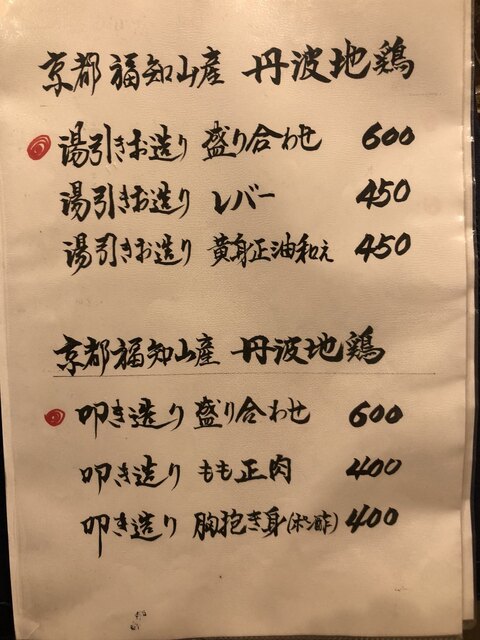 京都福知山産 丹波地鶏
湯引きお造り 盛り合わせ 600
湯引きお造り レバー 450
湯引きお造り 黄身正油和え 450
京都福知山産 丹波地鶏
叩き造り 盛り合わせ 600
叩き造り もも正肉 400
叩き造り 胸抱き身(ポン酢) 400